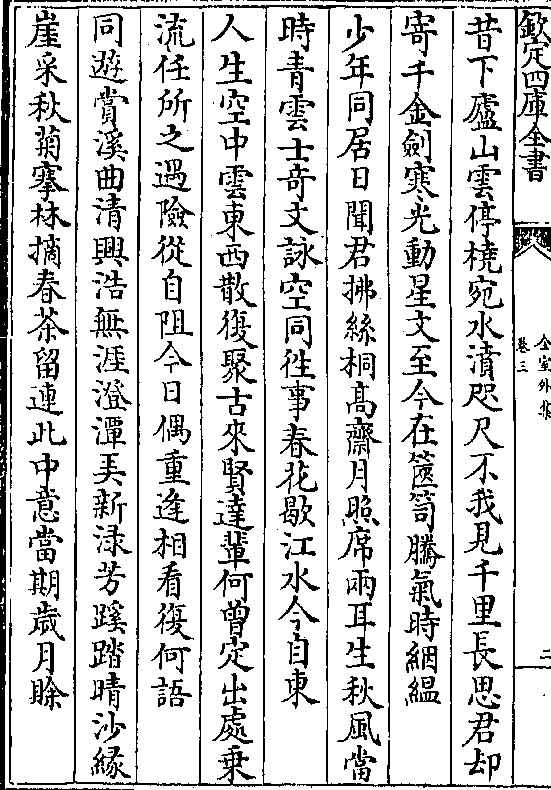 欽定四庫全書
全室外集
卷三
二
昔下廬山雲停橈宛水濆咫尺不我見千里長思君却
寄千金劍寒光動星文至今在篋笥騰氣時絪縕
少年同居日聞君拂絲桐高齋月照席兩耳生秋風當
時青雲士竒文詠空同徃事春花歇江水今自東
人生空中雲東西散復聚古來賢達輩何曾定出處乗
流任所之遇險從自阻今日偶重逢相看復何語
同遊賞溪曲清興浩無涯澄潭弄新渌芳蹊踏晴沙緣
崖采秋菊搴林摘春茶留連此中意當期歲月賖